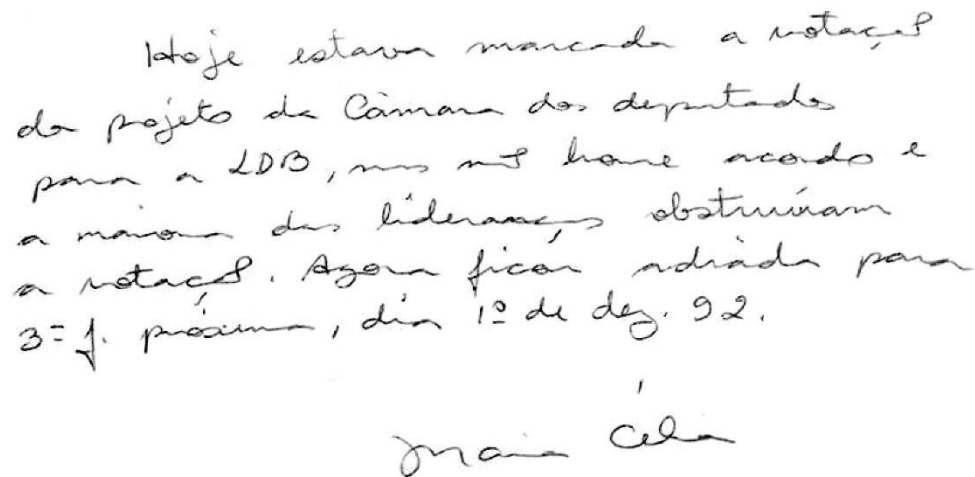 Hoje estava marcada a votação
do projeto da Câmara dos deputados
para a LDB, mas não houve acordo e
a maioria das lideranças obstruíram
a votação. Agora ficou adiada para
3ª f. próxima, dia 1º de dez. 92.
Maria Célia